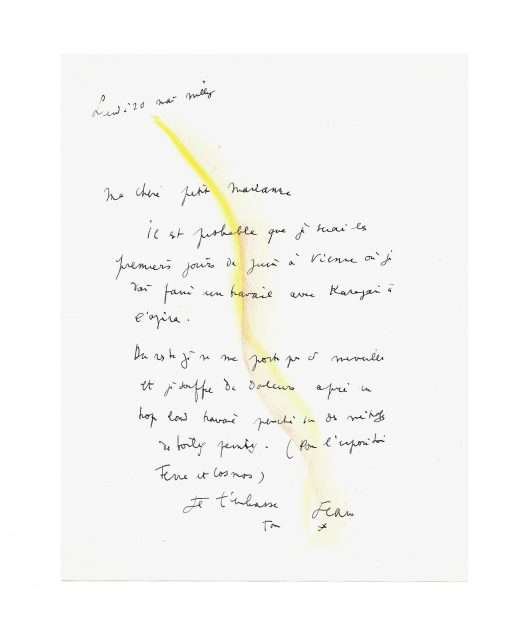 Lundi 20 mai Milly
Ma chère petite Marianne
il est probable que je serai les
premiers jours de juin à Vienne où je
dois faire un travail avec Karajan à
l'opéra.
Du reste je ne me porte pas à merveille
et je souffre de douleurs après un
trop lourd travail penché sur des mètres
de toiles peintes. (Pour l'exposition
Terre et Cosmos)
Je t'embrasse
Ton Jean